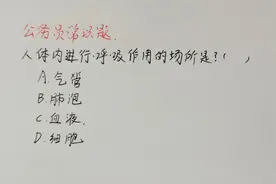 公务员常识题.
人体内进行呼吸作用的场所是?( )
A.气管
B.肺泡
C.血液
D.细胞